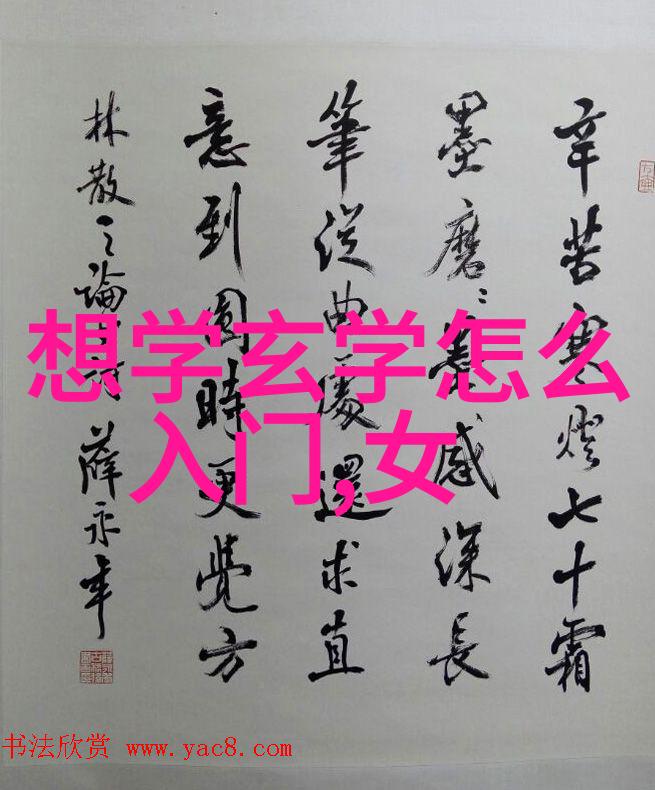 辛苦寒燈七十霜
墨磨〻墨感深長
筆從曲處還求直
意到圓時更覺方
林散之論書詩 薛永年
想学玄学怎么
入门,女
书法欣赏 www.yac8.com